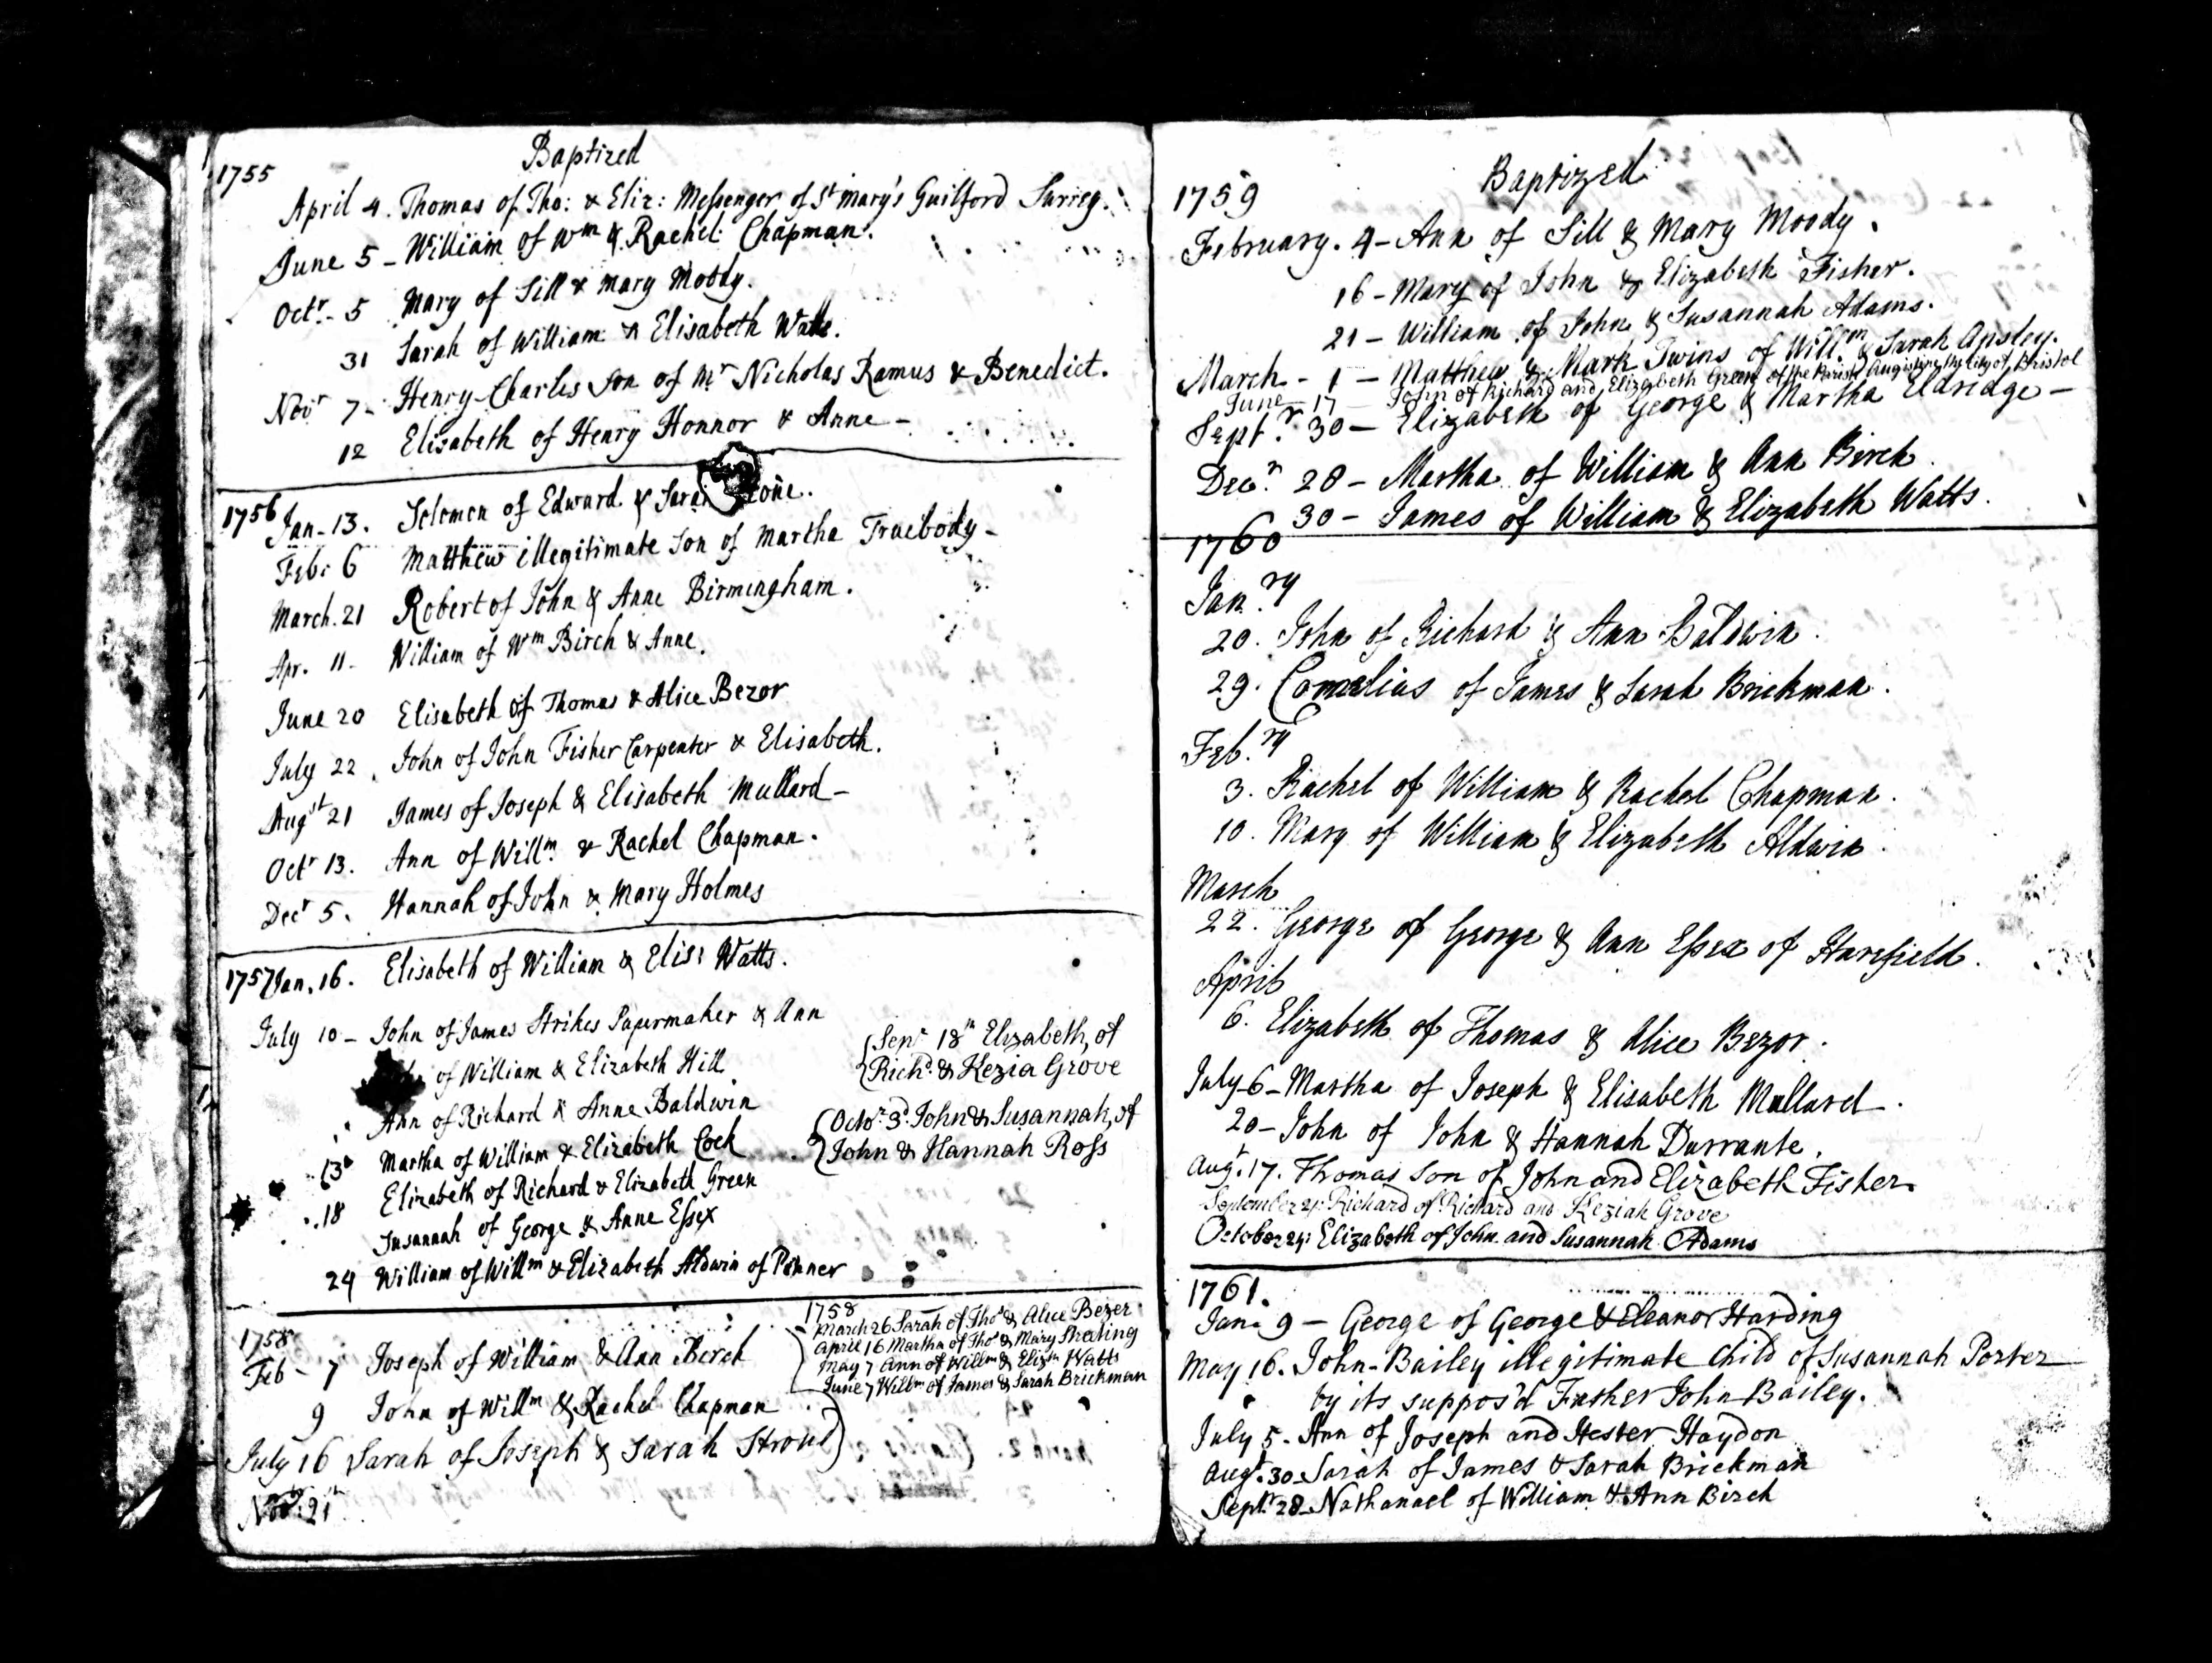 Baptized
1755
April 4. Thomas of Tho: & Eliz: Messenger of St Mary's Guilford Surrey.
June 5 - William of Wm & Rachel Chapman.
Octr. 5 Mary of Sill & Mary Moody.
31 Sarah of William & Elisabeth Watts.
Novr 7 - Henry-Charles Son of Mr Nicholas Ramus & Benedict.
12 Elisabeth of Henry Honnor & Anne -
1756 Jan. 13. Solomon of Edward & Sarah
Feb: 6 Matthew illegitimate Son of Martha Truebody -
March. 21 Robert of John & Anne Birmingham.
Apr. 11 - William of Wm Birch & Anne.
June 20 Elisabeth of Thomas & Alice Bezor
July 22. John of John Fisher Carpenter & Elisabeth.
Augst 21 James of Joseph & Elisabeth Mullard -
Octr 13. Ann of Willm & Rachel Chapman.
Decr 5. Hannah of John & Mary Holmes
1757 Jan. 16. Elisabeth of William & Elis: Watts.
July 10 - John of James Strikes Papermaker & Ann
of William & Elizabeth Hill
Ann of Richard & Anne Baldwin
13 Martha of William & Elizabeth Cock
18 Elizabeth of Richard & Elizabeth Green
Susannah of George & Anne Essex
24 William of Willm & Elizabeth Aldwin of Pinner
Sepr 18th Elizabeth, of
Richd. & Kezia Grove
Octor. 3d. John & Susannah, of
John & Hannah Ross
1758
Feb - 7 Joseph of William & Ann Birch
9 John of Willm & Rachel Chapman
July 16 Sarah of Joseph & Sarah Stroud
Novr. 21
1758
March 26 Sarah of Thos & Alice Bezer
April 16 Martha of Thos & Mary
May 7 Ann of Willm & Elizth Watts
June 7 Willm of James & Sarah Brickman
Baptized
1759
February. 4 - Ann of Sill & Mary Moody.
16 - Mary of John & Elizabeth Fisher.
21 - William of John & Susannah Adams.
March - 1 - Matthew & Mark Twins of Willm & Sarah Apsley.
June 17 John of Richard and Elizabeth Green of the Parish Augistine the City of Bristol
Septr. 30 - Elizabeth of George & Martha Eldridge -
Decr. 20 - Martha of William & Ann Birch
30 - James of William & Elizabeth Watts.
1760
Janry
20. John of Richard & Ann Baldwin.
29. Cornelius of James & Sarah Brickman.
Febry
3. Rachel of William & Rachel Chapman.
10. Mary of William & Elizabeth Aldwin.
March
22. George of George & Ann Essex of Harefield.
April
6. Elizabeth of Thomas & Alice Bezor.
July 6 - Martha of Joseph & Elisabeth Mullard.
20 - John of John & Hannah Durrante.
Augt. 17. Thomas Son of John and Elizabeth Fisher.
September 21: Richard of Richard and Keziah Grove
October 24: Elizabeth of John and Susannah Adams
1761.
Jan: 9 - George of George & Eleanor Harding
May 16. John-Bailey illegitimate Child of Susannah Porter
by its suppos'd Father John Bailey.
July 5 - Ann of Joseph and Hester Haydon
Augt. 30 - Sarah of James & Sarah Brickman
Septr 28 - Nathanael of William & Ann Birch